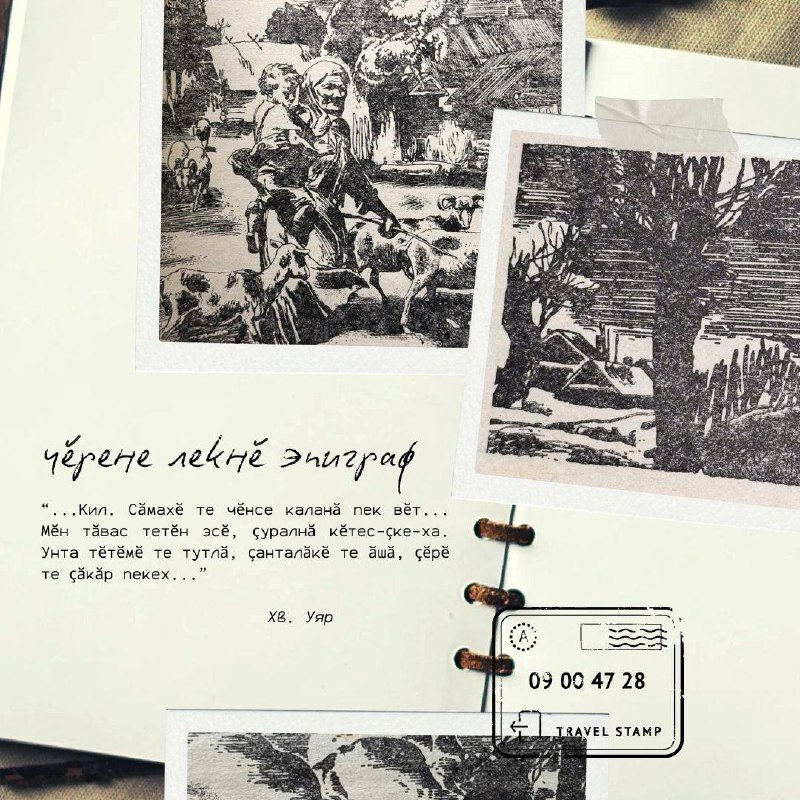 чӗрене лекнӗ эпиграф
“...Кил. Сăмахӗ те чӗнсе каланă пек вӗт...
Мӗн тăвас тетӗн эсӗ, çуралнă кӗтес-çке-ха.
Унта тӗтӗмӗ те тутлă, çанталăкӗ те ăшă, çӗрӗ
те çăкăр пекех...”
Хв. Уяр
A
09 00 47 28
TRAVEL STAMP